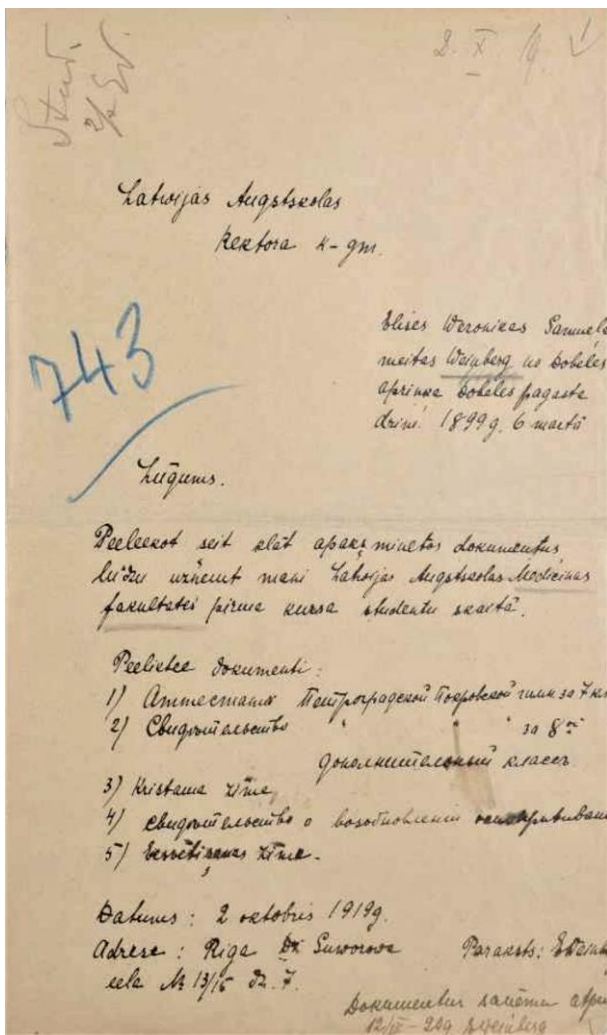 Stud.
2. X. 19.
Latwijas Augstskolas
Rektora k-gm.
743
Elises Weronikas Samuela
meitas Weinberg no Dobeles
aprinķa Dobeles pagasta
dzim. 1899 g. 6 martā
Lūgums.
Peeleekot šeit klāt apakš minetos dokumentus
lūdzu uzņemt mani Latvijas Augstskolas Medicinas
fakultatei pirma kursa studentu skaitā.
Peeliktee dokumenti:
1) Аттестатъ Петроградской Покровской гимн за 7 кл
2) Свидѣтельство " " " за 8ой
дополнительный классъ
3) Kristama zime
4) свидѣтельство о возобновленіи
5) zime.
Datums: 2 oktobris 1919g.
Adrese: Riga Suworowa
eela № 13/15 dz. 7.
Paraksts: EWeinb
Dokumentus saņēmu atpa